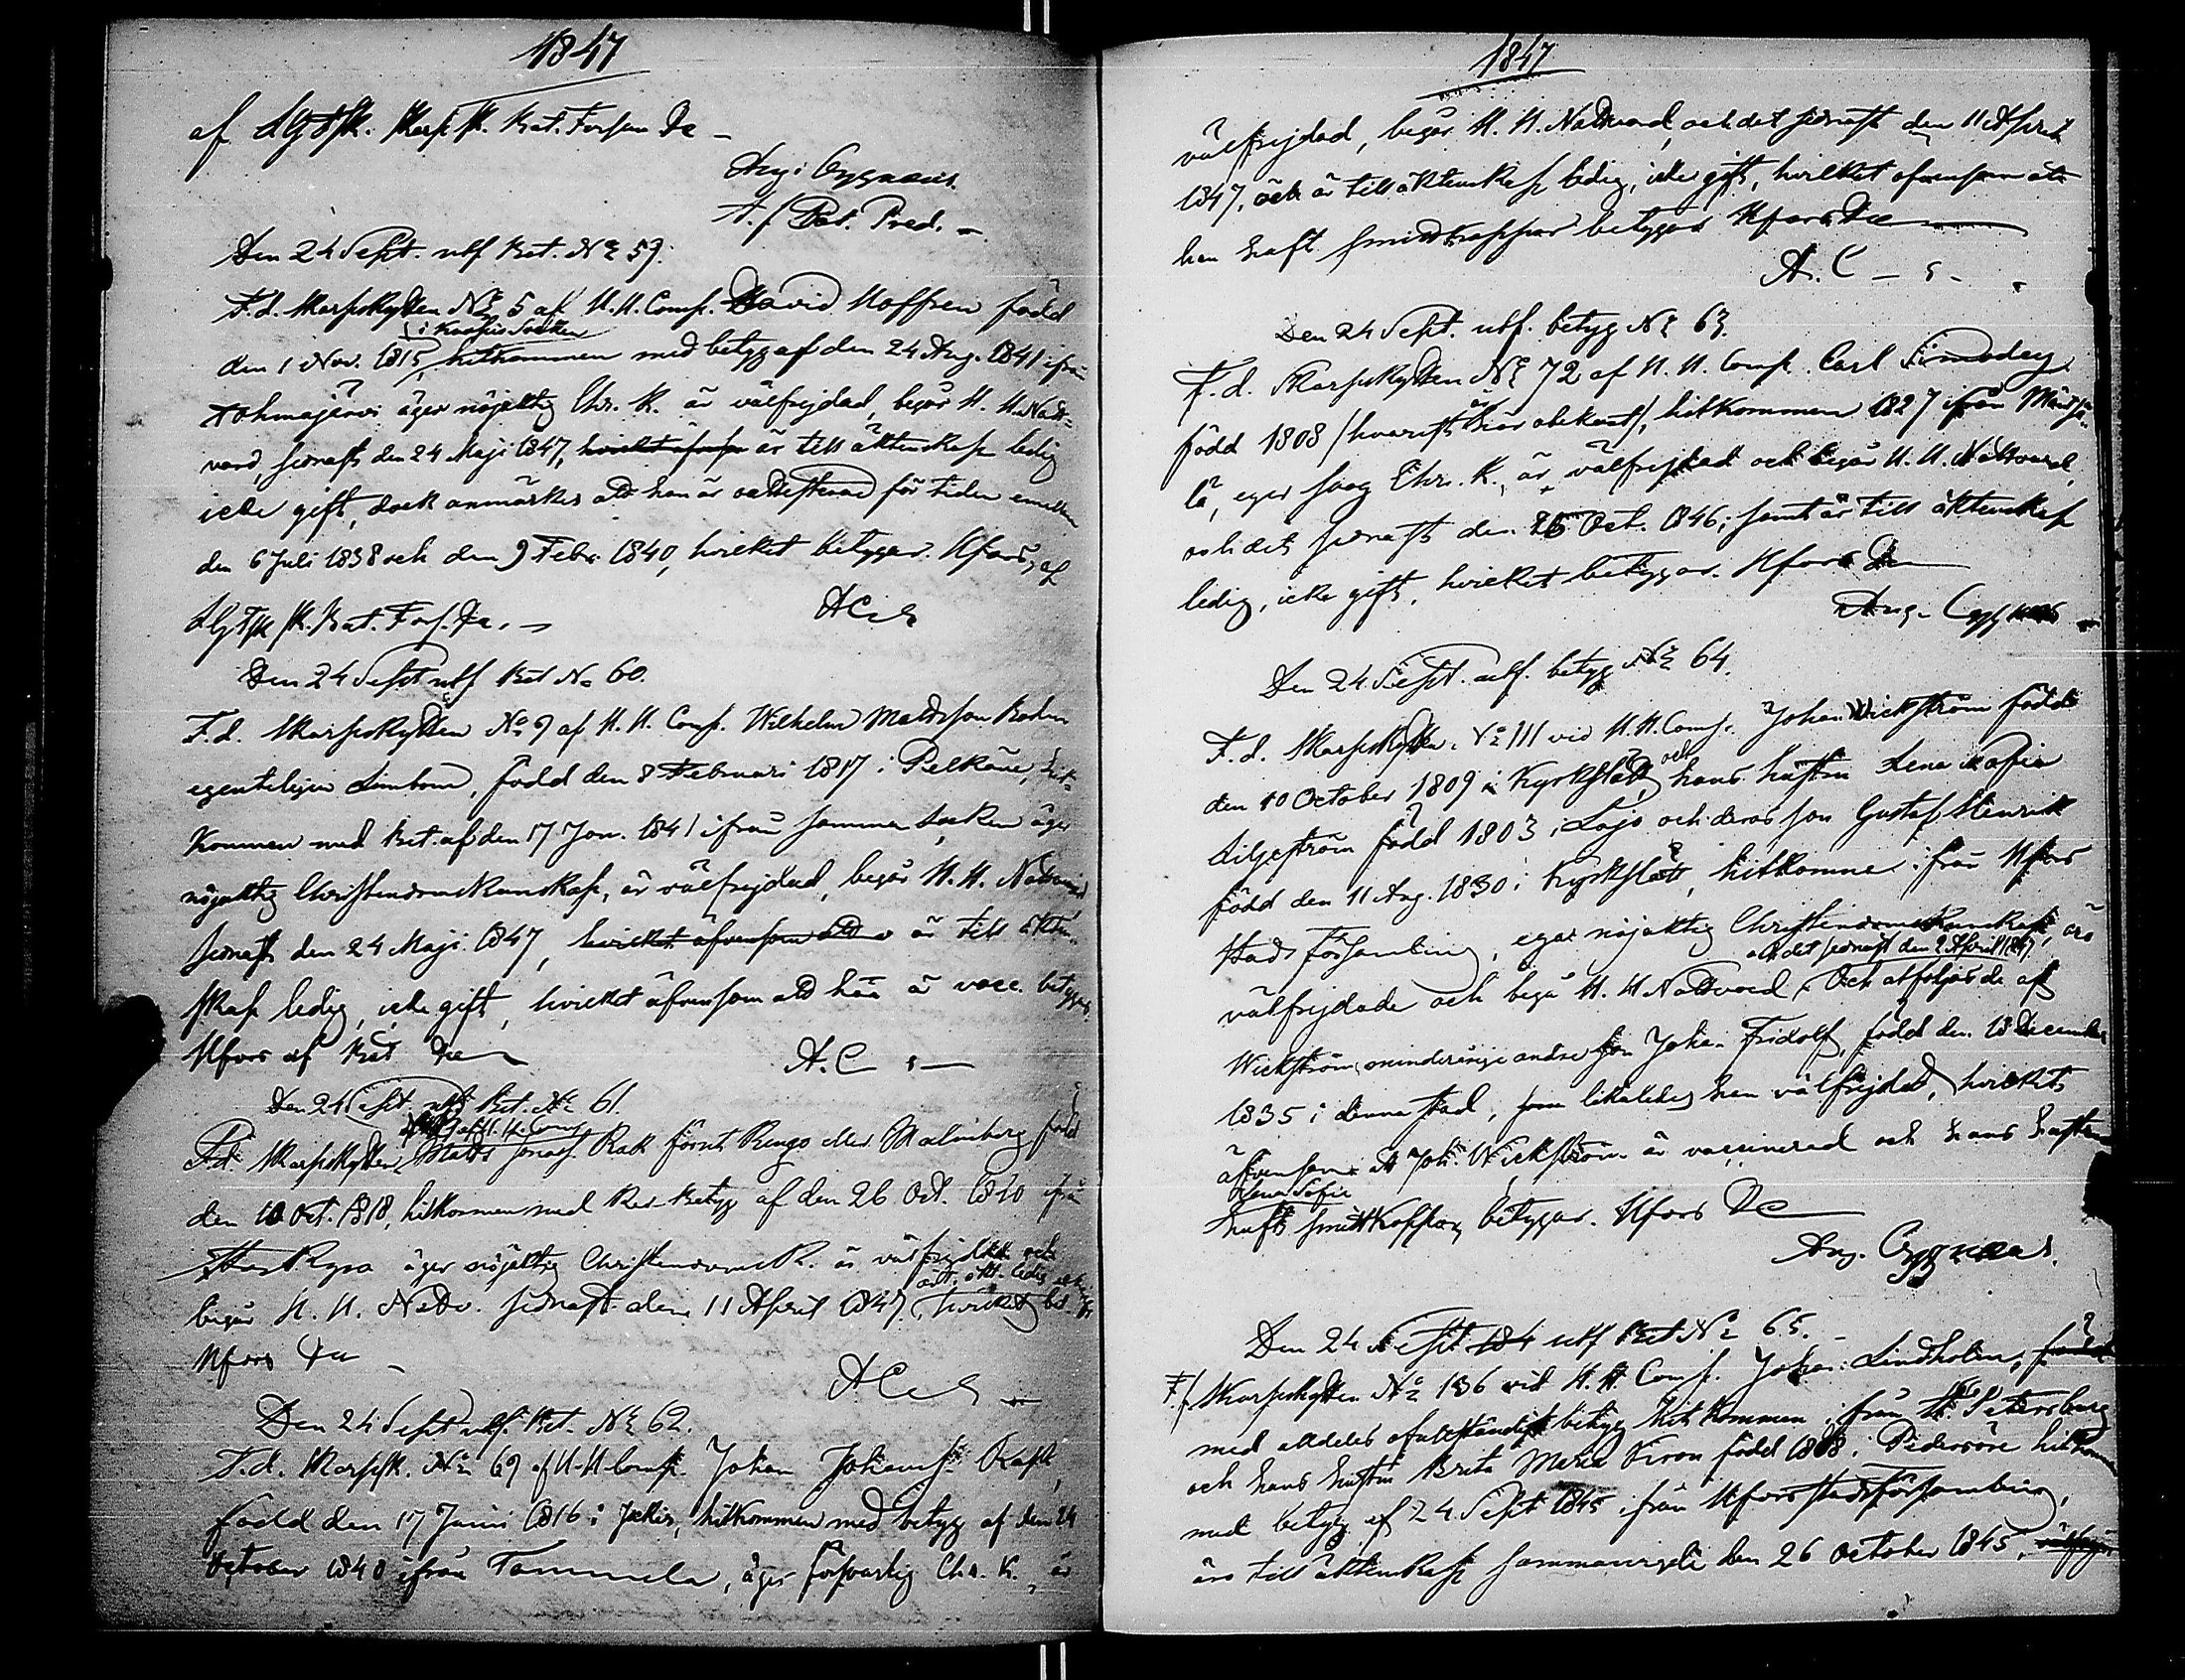 1847
af Skarpsk. Bat. Försam. Da
Aug: Cygnaeus.
t. f. Bat. Pred.
Den 24 Sept. utf Bet. No 59.
F.d. Skarpskytten No 5 af H.H. Comp. David Hoffren född
i Kuopio Socken
den 1 Nov. 1815, hitkommen med betyg af den 24 Aug. 1841 ifrån
Tohmajärvi äger nöjaktig Chr. K. är välfrejdad, begår H. H. Natt-
vard, sednast den 24 Maji 1847, är till äktenskap ledig
icke gift, dock anmärkes att han är oattesterad för tiden emellan
den 6 Juli 1838 och den 9 Febr 1840, hvilket betygar. Hfors, af
Sk. Bat. Förs. Da.
A C
Den 24 Sept utf Bet No 60.
F.d. Skarpskytten No 9 af H. H. Comp. Wilhelm Mattsson
egenteligen Limbom, född den 8 Februari 1817 i Pelkäne, hit-
kommen med Bet. af den 17 Jan. 1841 ifrån samma socken äger
nöjaktig Christendomskunskap, är välfrejdad, begår H. H. Nattvard
sednast den 24 Maji 1847, hvilket äfvensom att är till äkten-
skap ledig, icke gift, hvilket äfvensom att han är vacc. betygas
Hfors af Bat Da
A. C
Den 24 Sept. utf Bet. No 61.
af H. H. Comp
F.d. Skarpskytten Matts Rask förut Rengo eller Malmberg född
den 10 Oct. 1818, hitkommen med betyg af den 26 Oct. 1840 ifrån
Storkyro äger nöjaktig Christendoms K. är välfrejdad och
äkt. ledig icke gift
begår H. H. Nattv. sednast den 11 April 1847, hvilket bet
Hfors Da
A C
Den 24 Sept utf. Bet. No 62.
F.d. Skarpsk. No 69 af H. H. Comp. Johan Johanss. Rask,
född den 17 Junii 1816 i Jockis, hitkommen med betyg af den 24
October 1840 ifrån Tammela, äger försvarlig Chr. K., är
1847
välfrejdad, begår H. H. Nattvard, och det sednast den 11 April
1847, och är till äktenskap ledig, icke gift, hvilket äfvensom att
han haft smittkoppor betygar Hfors Da
A. C
Den 24 Sept. utf. betyg No 63.
F.d. Skarpskytten No 72 af H. H. Comp. Carl
född 1808 /hvarest är obekant/, hitkommen 1827 ifrån Mäntsä-
lä, eger svag Chr. K., är välfrejdad och begår H. H. Nattvard,
och det sednast den 26 Oct. 1846; samt är till äktenskap
ledig, icke gift, hvilket betygar. Hfors Da
Aug. Cygnaeus
Den 24 Sept. utf. betyg No 64.
F.d. Skarpskytten No 111 vid H. H. Comp. Johan Wickström född
den 10 October 1809 i Kyrkslätt, och hans hustru Lena Sofia
Liljeström född 1803 i Lojo och deras son Gustaf Henrik
född den 11 Aug. 1830 i Kyrkslätt, hitkomne ifrån Hfors
Stads församling, ega nöjaktig Christendomskunskap, äro
och det sednast den 2 April 1847
välfrejdade och begå H. H. Nattvard. Och åtföljes de af
Wickströms minderårige andre son Johan Fridolf, född den 18 December
1835 i denna stad, som likaledes är välfrejdad, hvilket
äfvensom att Joh. Wickström är vaccinerad och hans hustru
Lena Sofia
haft smittkoppor, betygar. Hfors Da
Aug. Cygnaeus.
Den 24 Sept 184 utf Bet No 65.
F. f. Skarpskytten No 136 vid H. H. Comp. Johan Lindholm, född
med alldeles ofullständigt betyg hitkommen ifrån St. Petersburg
och hans hustru Brita Maria född 1808 i Pedersöre hitkommen
med betyg af 24 Sept 1845 ifrån Hfors stadsförsamling,
äro till äktenskap sammanvigde den 26 October 1845,